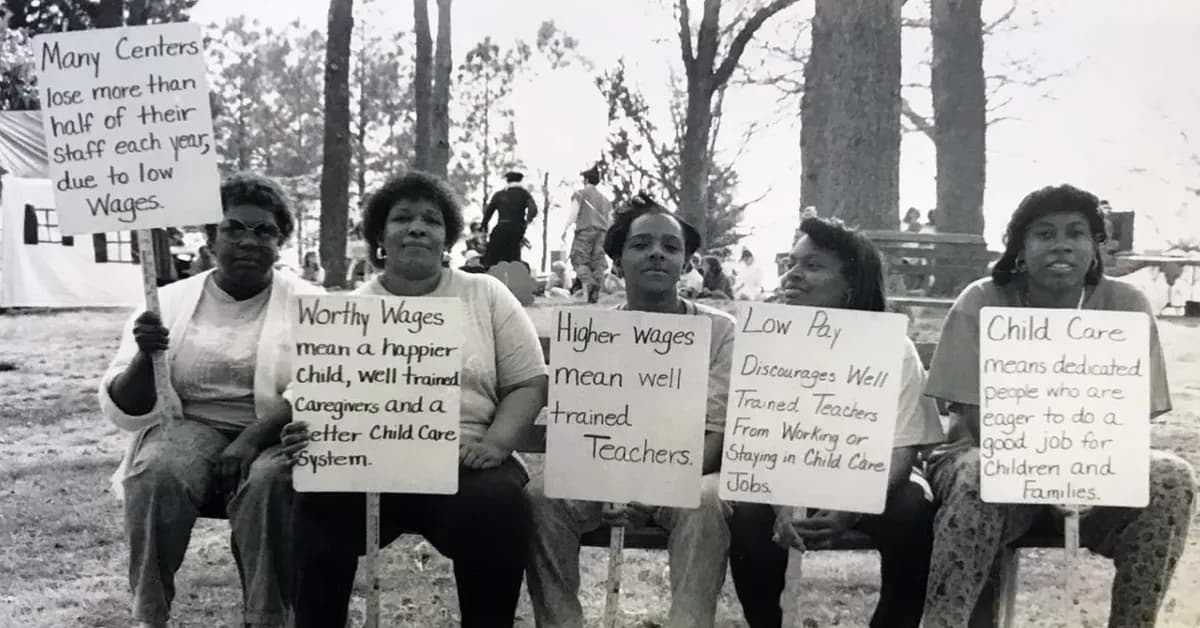 Many Centers
lose more than
half of their
Staff each year,
due to low
Wages.
Worthy Wages
mean a happier
Child, well trained
Caregivers and a
etter Child Care
System.
Higher wages
mean well
trained
Teachers.
Low Pay
Discourages Well
Trained Teachers
From Working or
Staying in Child Care
Jobs.
Child Care
means dedicated
people who are
eager to do a
good job for
Children and
Families.